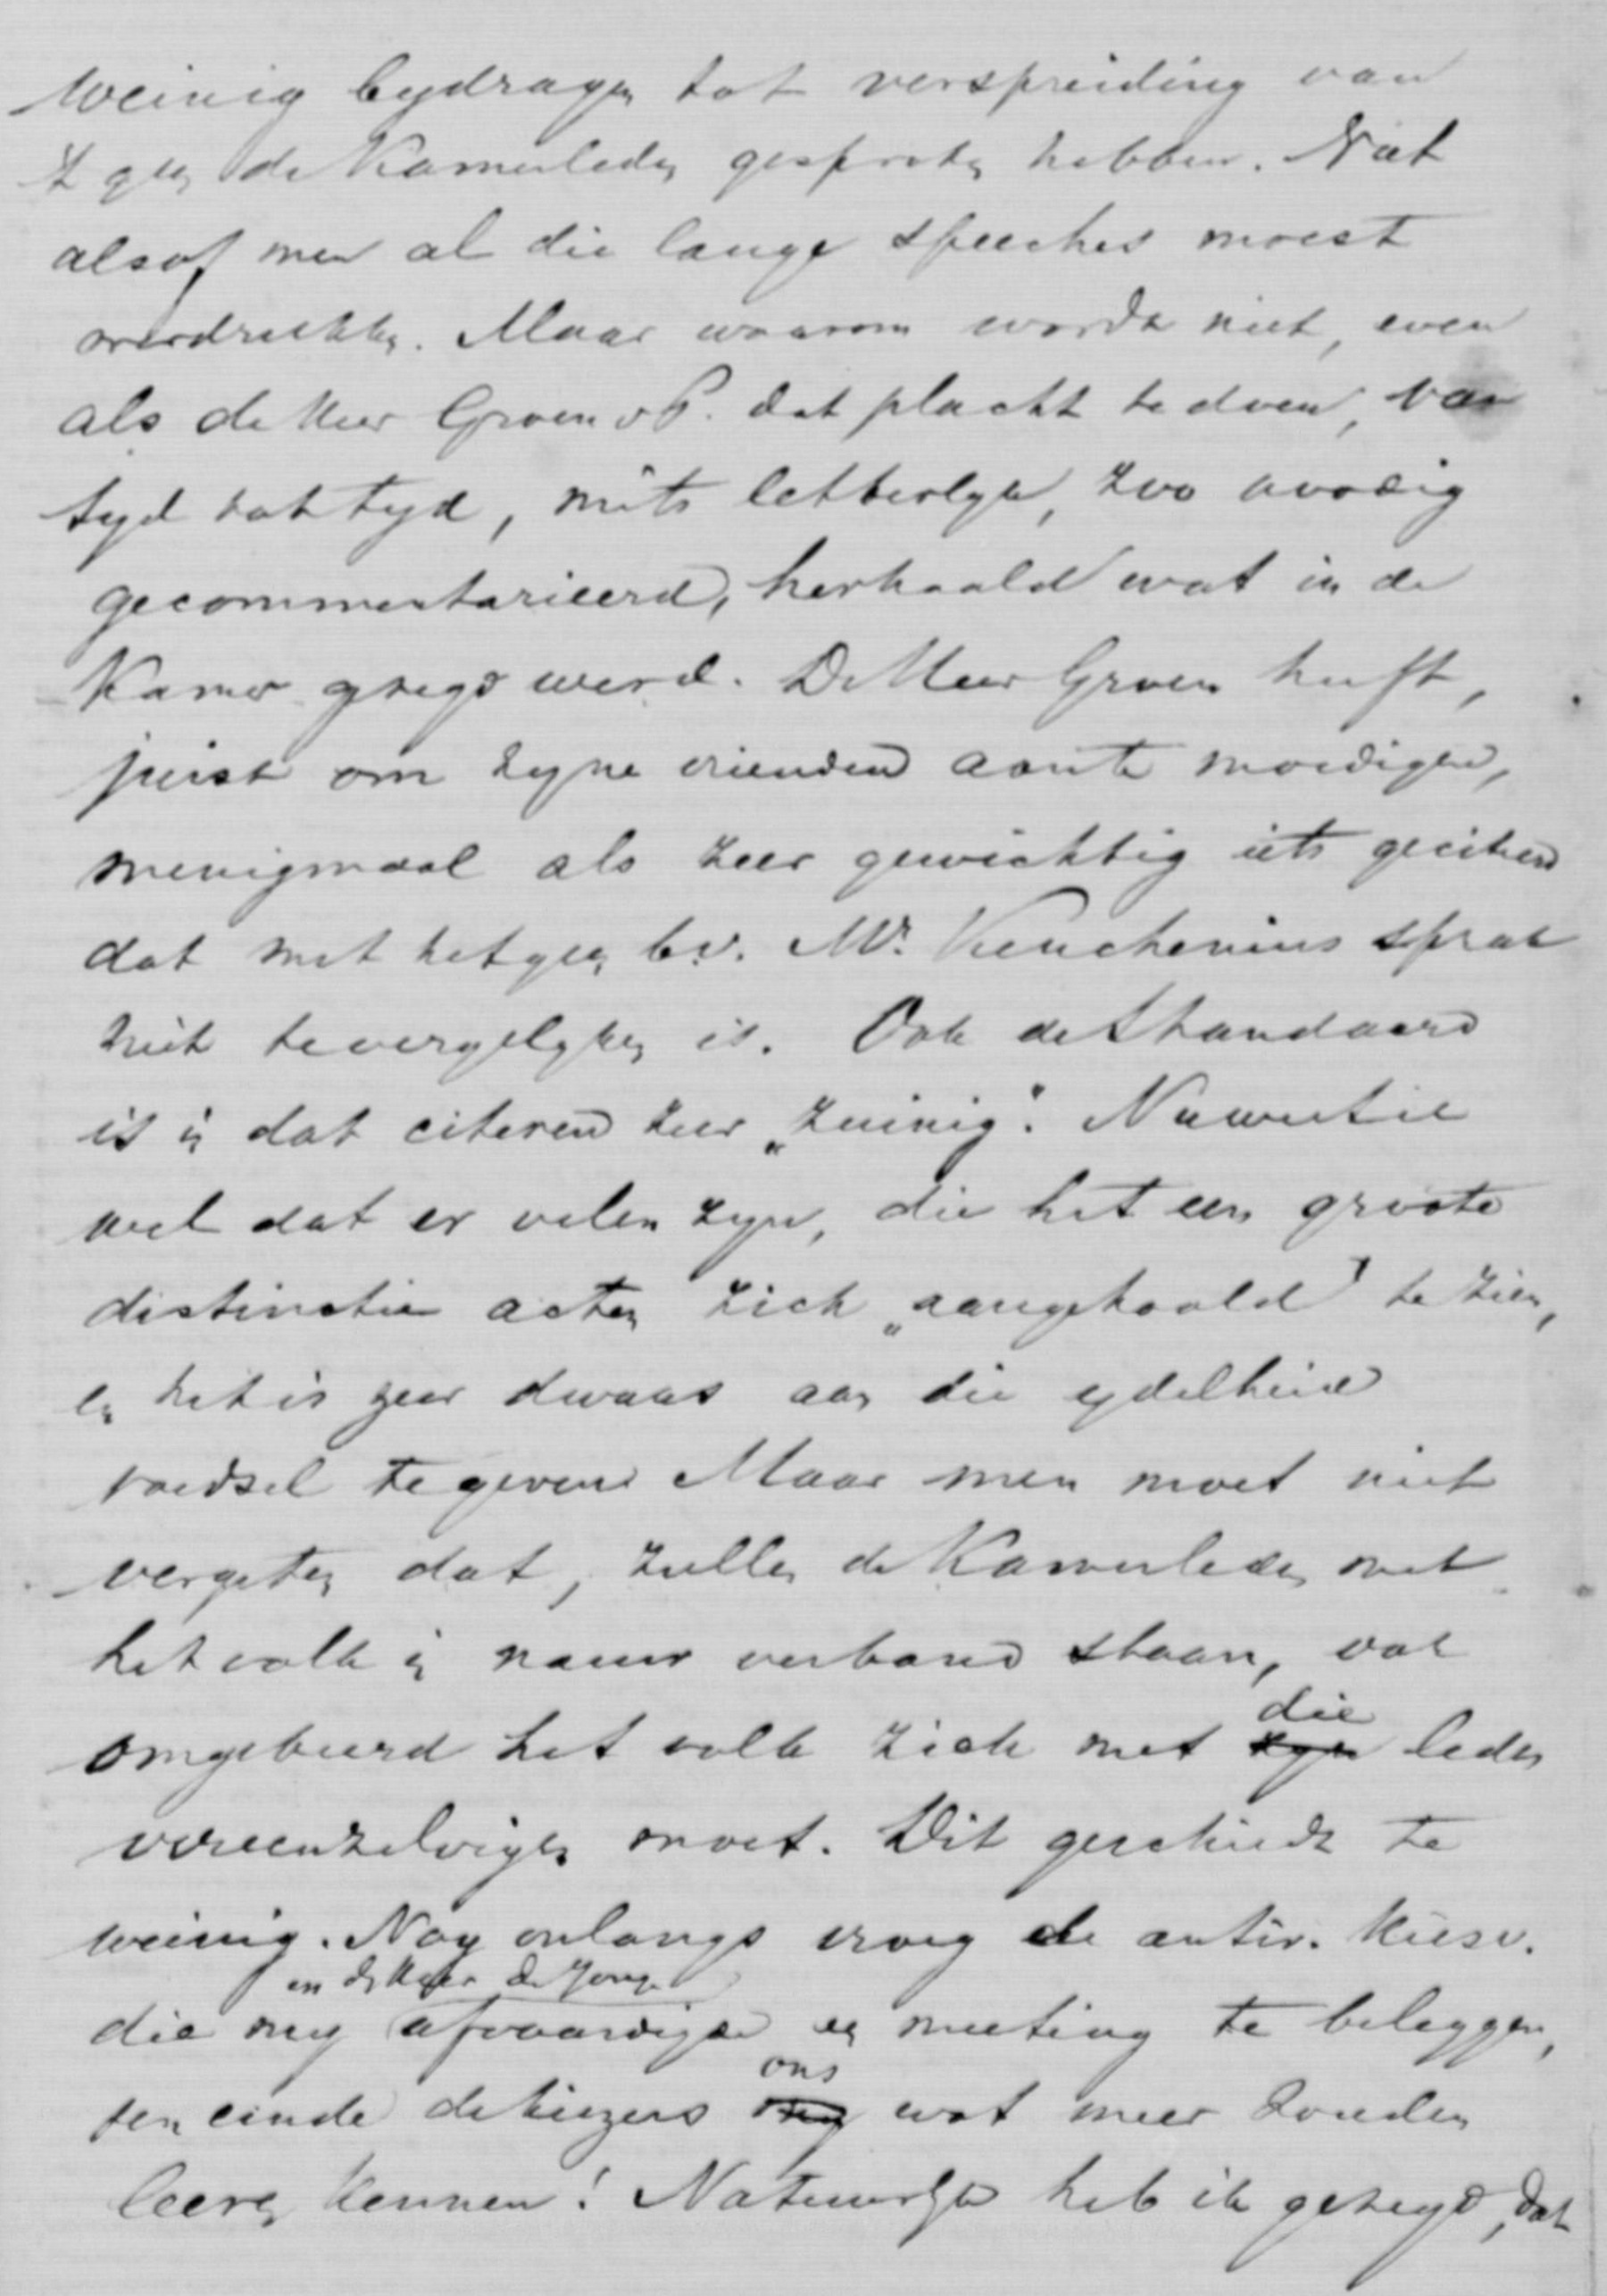 weinig bydragen tot verspreiding van
't geen de Kamerleden gesproken hebben. Niet
alsof men al die lange speeches moest
overdrukken. Maar waarom wordt niet, even
als de Heer Groen v P. dat placht te doen, van
tyd tot tyd, mits letterlyk, zoo noodig
gecommentarieerd, herhaald wat in de
Kamer gezegd werd. De Heer Groen heeft,
juist om zyne vrienden aan te moedigen,
menigmaal als zeer gewichtig iets geciteerd
dat met hetgeen bv. Mr. Keuchenius sprak
niet te vergelyken is. Ook de Standaard
is in dat citeren zeer „zuinig". Nu weet ik
wel dat er velen zyn, die het een groote
distinctie achten zich „aangehaald" te zien,
en het is zeer dwaas aan die ydelheid
voedsel te geven. Maar men moet niet
vergeten dat, zullen de Kamerleden met
het volk in nauw verband staan, ook
omgekeerd het volk zich met die leden
vereenzelvigen moet. Dit geschiedt te
weinig. Nog onlangs vroeg de antir. kiesv.
en den Heer de Jonge
die my afvaardigde een meeting te beleggen,
ten einde de kiezers ons wat meer zouden
leeren kennen! Natuurlyk heb ik gezegd, dat